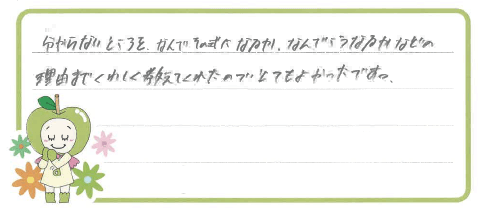 分からないところを、なんでその式になるか、なんでこうなるかなどの
理由までくわしく教えてくれたのでとてもよかったです。